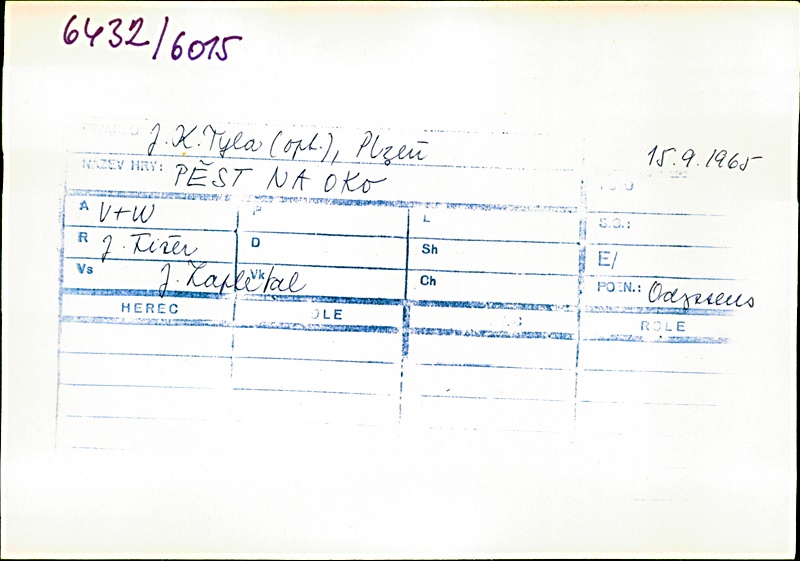 6432/6015
DIVADLO J.K. Tyla (opt.), Plzeň
15.9.1965
NÁZEV HRY: PĚST NA OKO
A V+W P L S.G.:
R J. Fišer D Sh E/
Vs J. Zapletal Vk Ch POZN.: Odysseus
HEREC ROLE ROLE